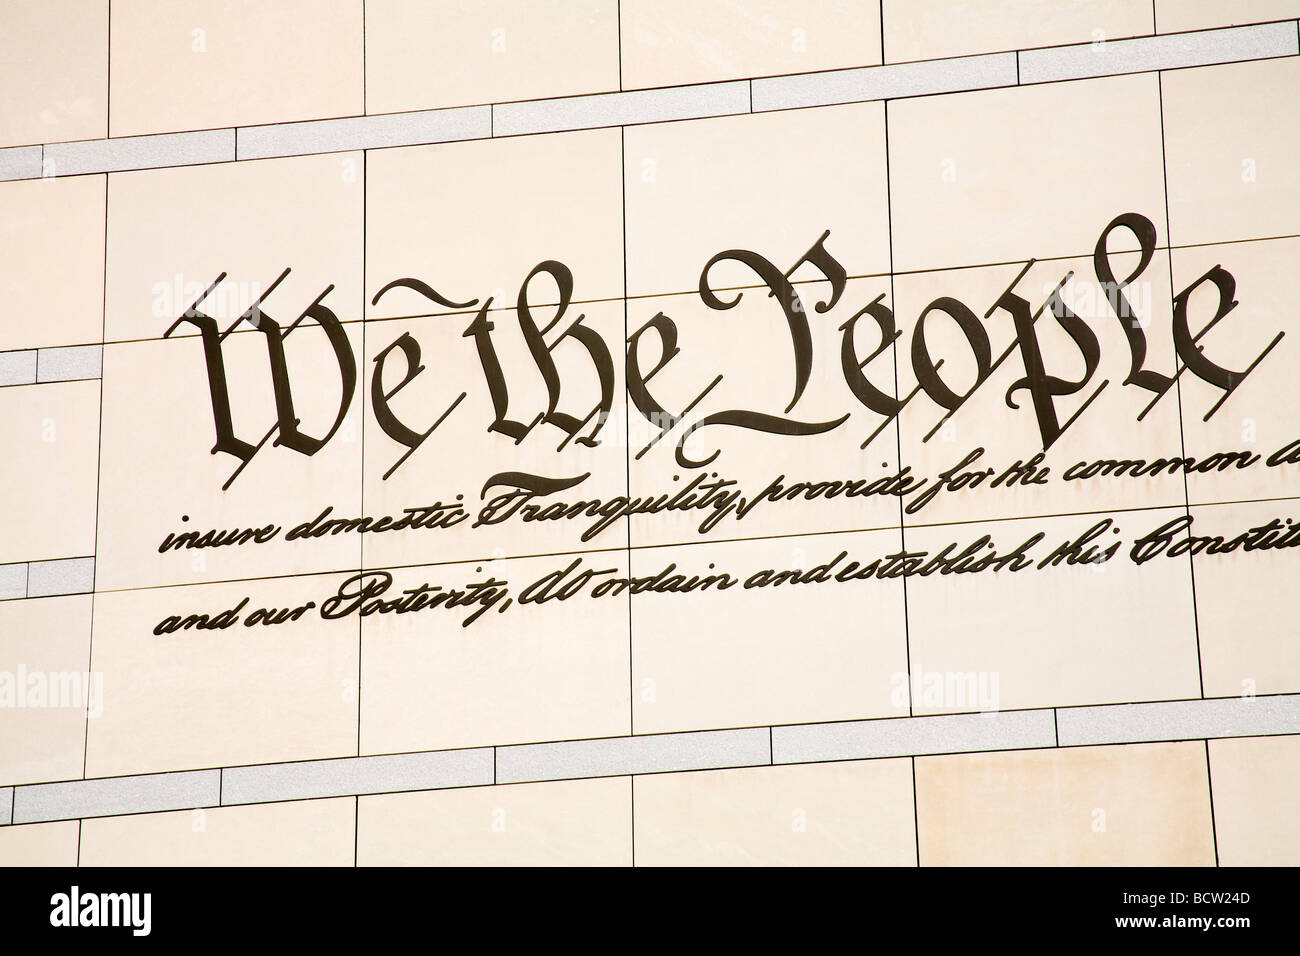 We the People
insure domestic Tranquility, provide for the common
and our Posterity, do ordain and establish this Constit
alamy
Image ID: BCW24D
www.alamy.com